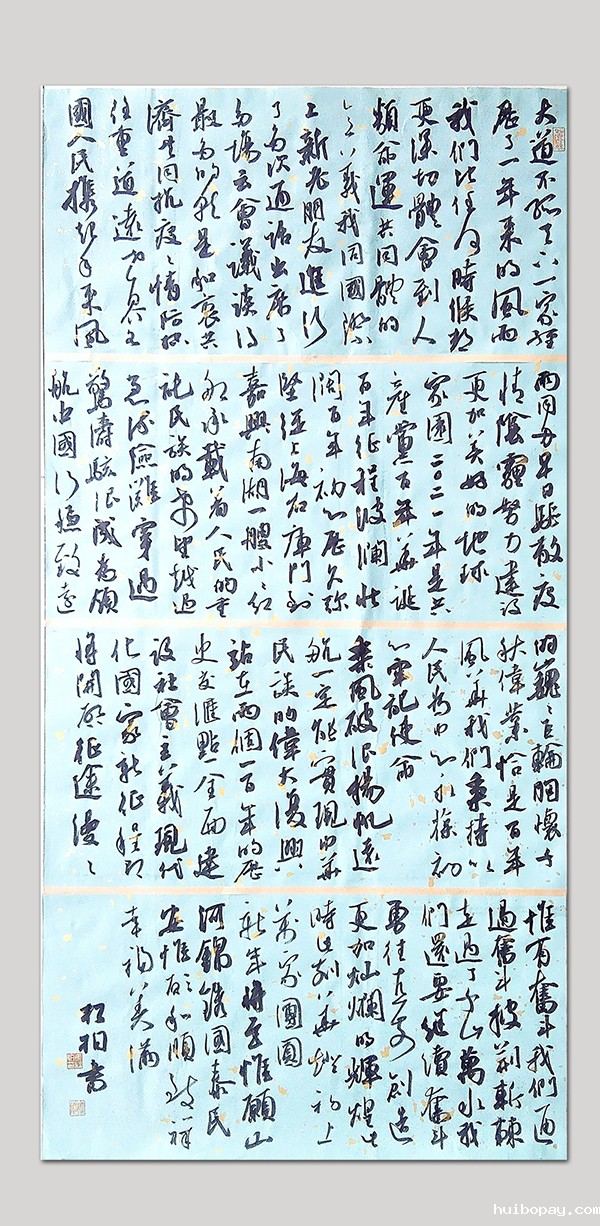 大道不孤天下一家經
歷了一年來的風雨
我們比任何時候都
更深切體會到人
類命運共同體的
意義我同國際
上新老朋友進行
了多次通話出席了
多場云會議談得
最多的就是和衷共
濟生同抗疫疫情防控
任重道遠世界各
國人民攜起手來風
雨同舟早日驅散疫
情陰霾努力建設
更加美好的地球
家園二〇二一年是共
產黨百年華誕
百年征程波瀾壯
闊百年初心歷久弥
堅從上海石庫門到
嘉興南湖一艘小小紅
船承載着人民的重
託民族的希望越过
急流險灘穿過
驚濤駭浪成為領
航中國行穩致遠
的巍巍巨輪胸懷千
秋偉業恰是百年
風華我們秉持以
人民為中心永葆初
心牢記使命
乘風破浪揚帆遠
航一定能實現中華
民族的偉大復興
站在兩個一百年的歷
史交匯點全面建
設社會主義現代
化國家新征程即
將開啟征途漫漫
惟有奮斗我們通
過奮斗披荊斬棘
走過了千山萬水我
們還要繼續奮斗
勇往直前創造
更加灿爛的輝煌此
時此刻華燈初上
萬家團圓
新年將至惟願山
河錦繡國泰民
安惟願和順致祥
幸福美滿
松柏書
huibopay.com